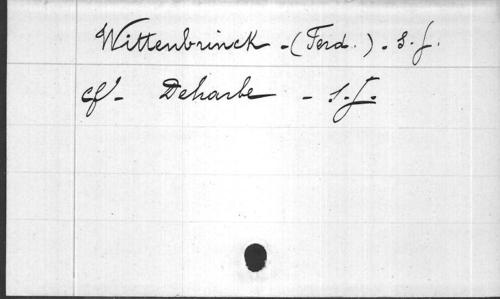 Wittenbrinck - (Ferd.) - S. J.
cf - Deharbe - S. J.